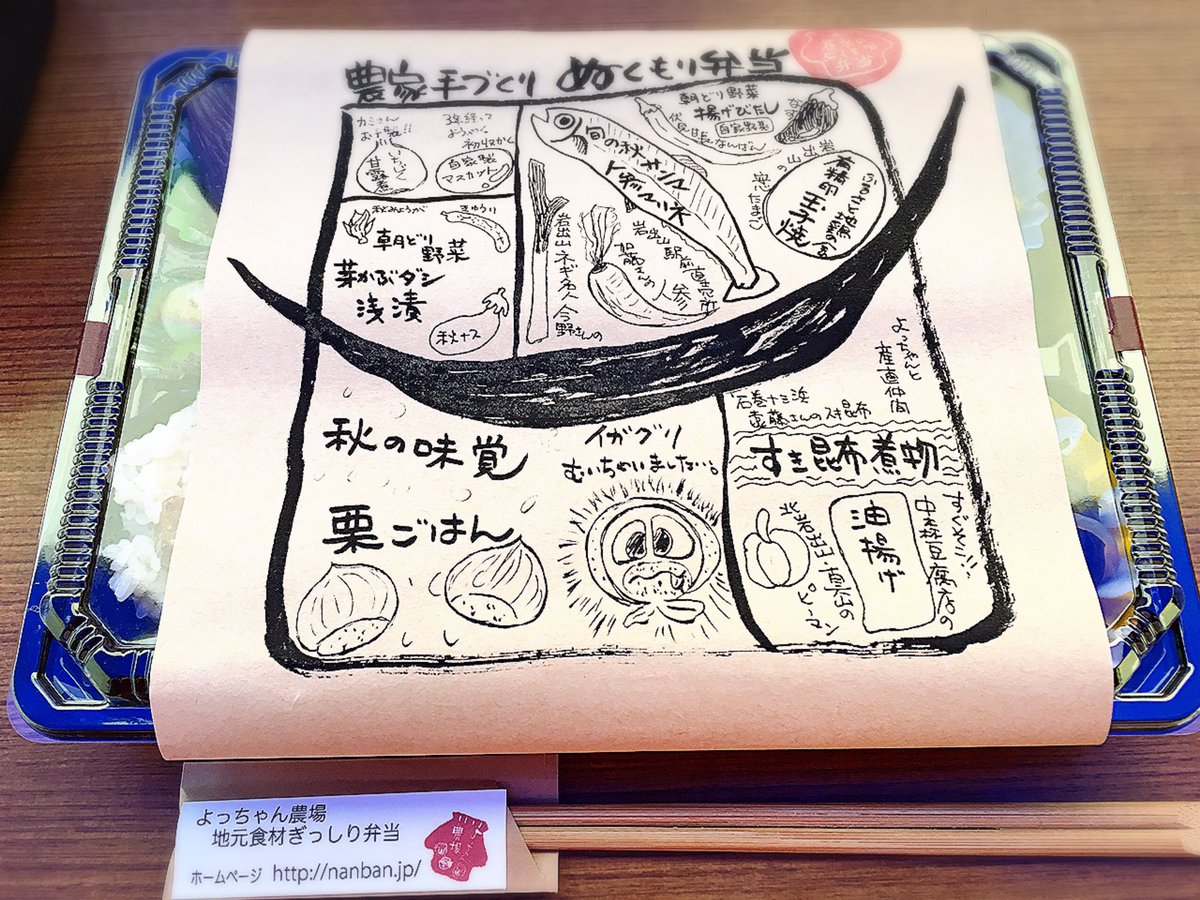 農家手づくり ぬくもり弁当
弁当
カミさん
お十八番!!
いちじく
甘露煮
3年経って
ようやく
初収かく
自家製
マスカット。
旬の秋サンマ
トマト煮
朝どり野菜
揚げびたし
自家野菜
伏見甘長なんばん
なす
岩出山
有精卵 玉子焼
秋みょうが
きゅうり
朝どり
野菜
芽かぶダシ
浅漬
秋ナス
岩出山ネギ名人今野さんの
岩出山駅前直売所
加藤さんの人参
よっちゃんと
産直仲間
秋の味覚
栗ごはん
イガグリ
むいちゃいました…。
石巻十三浜
遠藤さんのスキ昆布
すき昆布煮物
すぐそこ!!!
中森豆腐店の
油揚げ
ピーマン
よっちゃん農場
地元食材ぎっしり弁当
ホームページ http://nanban.jp/